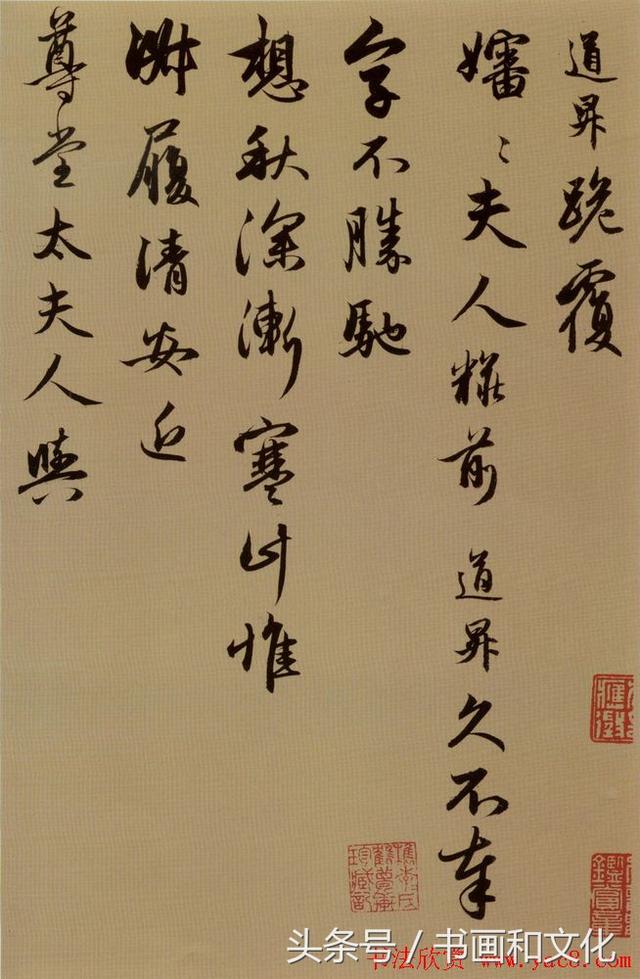 道昇跪覆
嬸〻夫人糚前道昇久不奉
字不勝馳
想秋深漸寒計惟
淑履清安近
尊堂太夫人與
鶴夢軒
珍藏記
头条号 / 书画和文化
书法欣赏 www.yac8.com